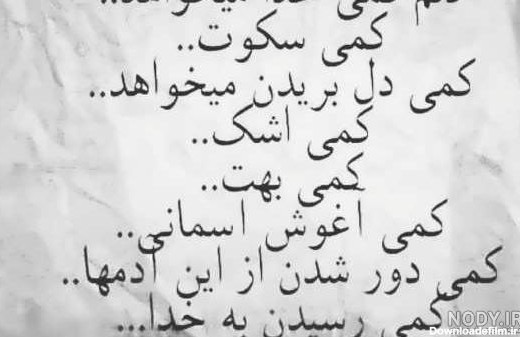 دلم کمی خدا میخواهد..
کمی سکوت..
کمی دل بریدن میخواهد..
کمی اشک..
کمی بهت..
کمی آغوش اسمانی..
کمی دور شدن از این آدمها..
کمی رسیدن به خدا...
NODY.IR
Downloadefilm.ir